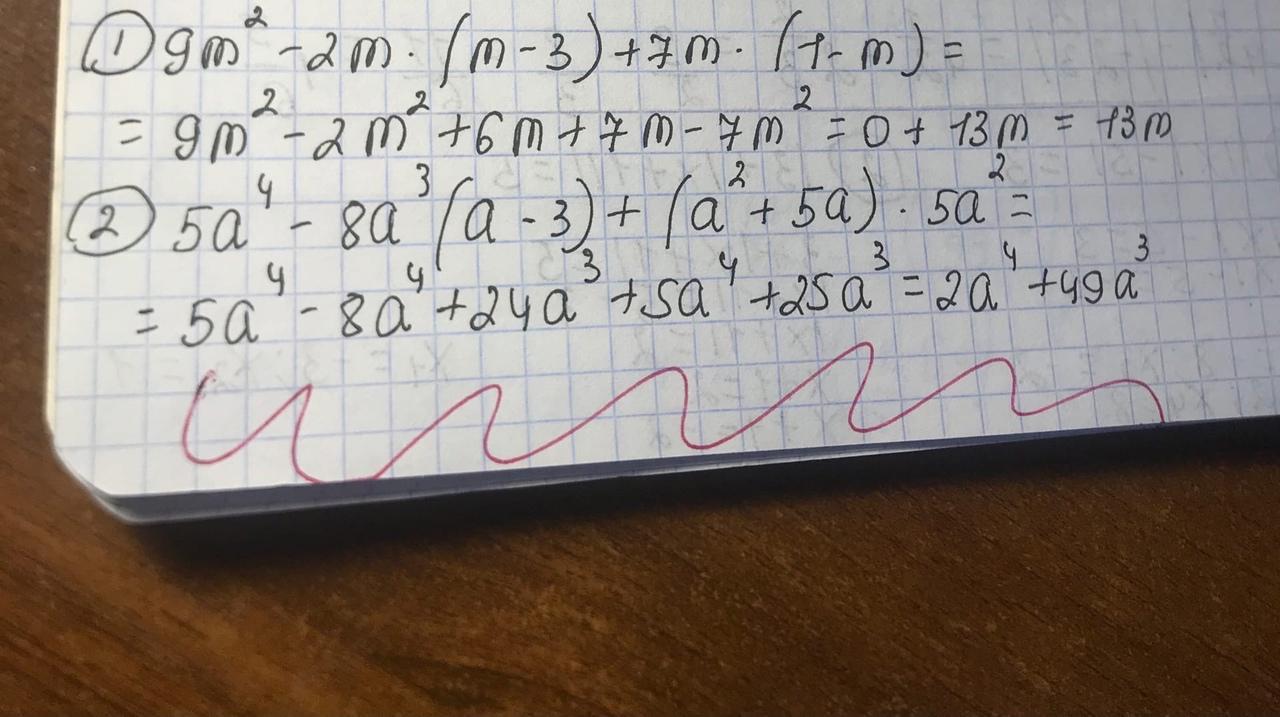 ① 9m² - 2m · (m - 3) + 7m · (1 - m) =
= 9m² - 2m² + 6m + 7m - 7m² = 0 + 13m = 13m
② 5a⁴ - 8a³(a - 3) + (a² + 5a) · 5a² =
= 5a⁴ - 8a⁴ + 24a³ + 5a⁴ + 25a³ = 2a⁴ + 49a³